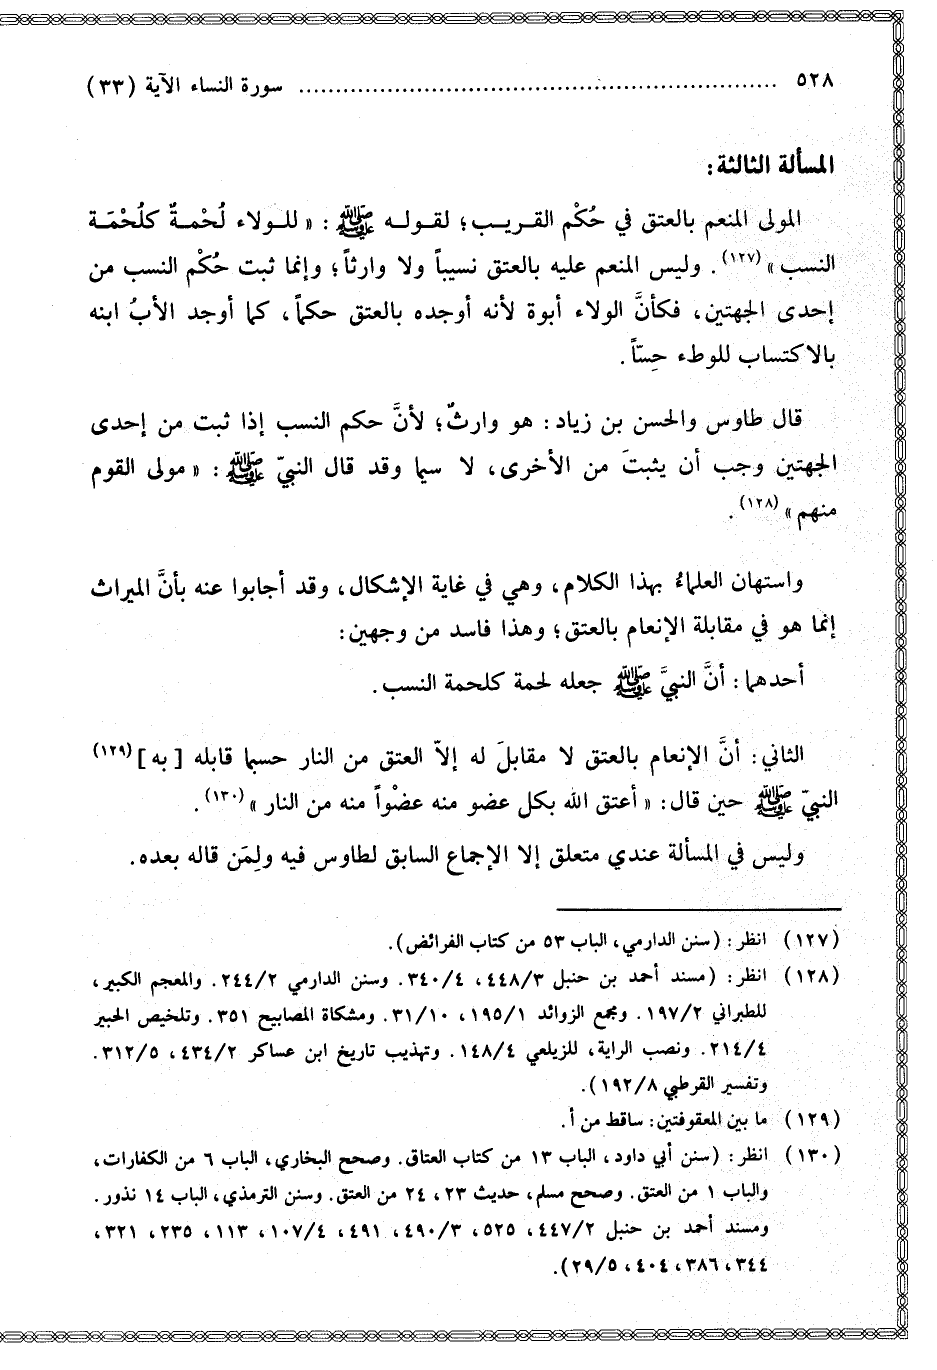 ٥٢٨ ........................................................ سورة النساء الآية (٣٣)
المسألة الثالثة:
المولى المنعم بالعتق في حُكْم القريب؛ لقوله ﷺ: «للولاء لُحْمةٌ كلُحْمَة
النسب» (١٢٧). وليس المنعم عليه بالعتق نسيباً ولا وارثاً؛ وإنما ثبت حُكْم النسب من
إحدى الجهتين، فكأنَّ الولاء أبوة لأنه أوجده بالعتق حكماً، كما أوجد الأبُ ابنه
بالاكتساب للوطء حِسّاً.
قال طاوس والحسن بن زياد: هو وارثٌ؛ لأنَّ حكم النسب إذا ثبت من إحدى
الجهتين وجب أن يثبتَ من الأخرى، لا سيما وقد قال النبيّ ﷺ: «مولى القوم
منهم» (١٢٨).
واستهان العلماءُ بهذا الكلام، وهي في غاية الإشكال، وقد أجابوا عنه بأنَّ الميراث
إنما هو في مقابلة الإنعام بالعتق؛ وهذا فاسد من وجهين:
أحدهما: أنَّ النبيَّ ﷺ جعله لحمة كلحمة النسب.
الثاني: أنَّ الإنعام بالعتق لا مقابلَ له إلاّ العتق من النار حسبما قابله [به] (١٢٩)
النبيّ ﷺ حين قال: «أعتق الله بكل عضو منه عضْواً منه من النار» (١٣٠).
وليس في المسألة عندي متعلق إلا الإجماع السابق لطاوس فيه ولِمَن قاله بعده.
(١٢٧) انظر: (سنن الدارمي، الباب ٥٣ من كتاب الفرائض).
(١٢٨) انظر: (مسند أحمد بن حنبل ٤٤٨/٣، ٣٤٠/٤. وسنن الدارمي ٢٤٤/٢. والمعجم الكبير،
للطبراني ١٩٧/٢. ومجمع الزوائد ١٩٥/١، ٣١/١٠. ومشكاة المصابيح ٣٥١. وتلخيص الحبير
٢١٤/٤. ونصب الراية، للزيلعي ١٤٨/٤. وتهذيب تاريخ ابن عساكر ٤٣٤/٢، ٣١٢/٥.
وتفسير القرطبي ١٩٢/٨).
(١٢٩) ما بين المعقوفتين: ساقط من أ.
(١٣٠) انظر: (سنن أبي داود، الباب ١٣ من كتاب العتاق. وصحح البخاري، الباب ٦ من الكفارات،
والباب ١ من العتق. وصحح مسلم، حديث ٢٣، ٢٤ من العتق. وسنن الترمذي، الباب ١٤ نذور.
ومسند أحمد بن حنبل ٤٤٧/٢، ٥٢٥، ٤٩٠/٣، ٤٩١، ١٠٧/٤، ١١٣، ٢٣٥، ٣٢١،
٣٤٤، ٣٨٦، ٤٠٤، ٢٩/٥).